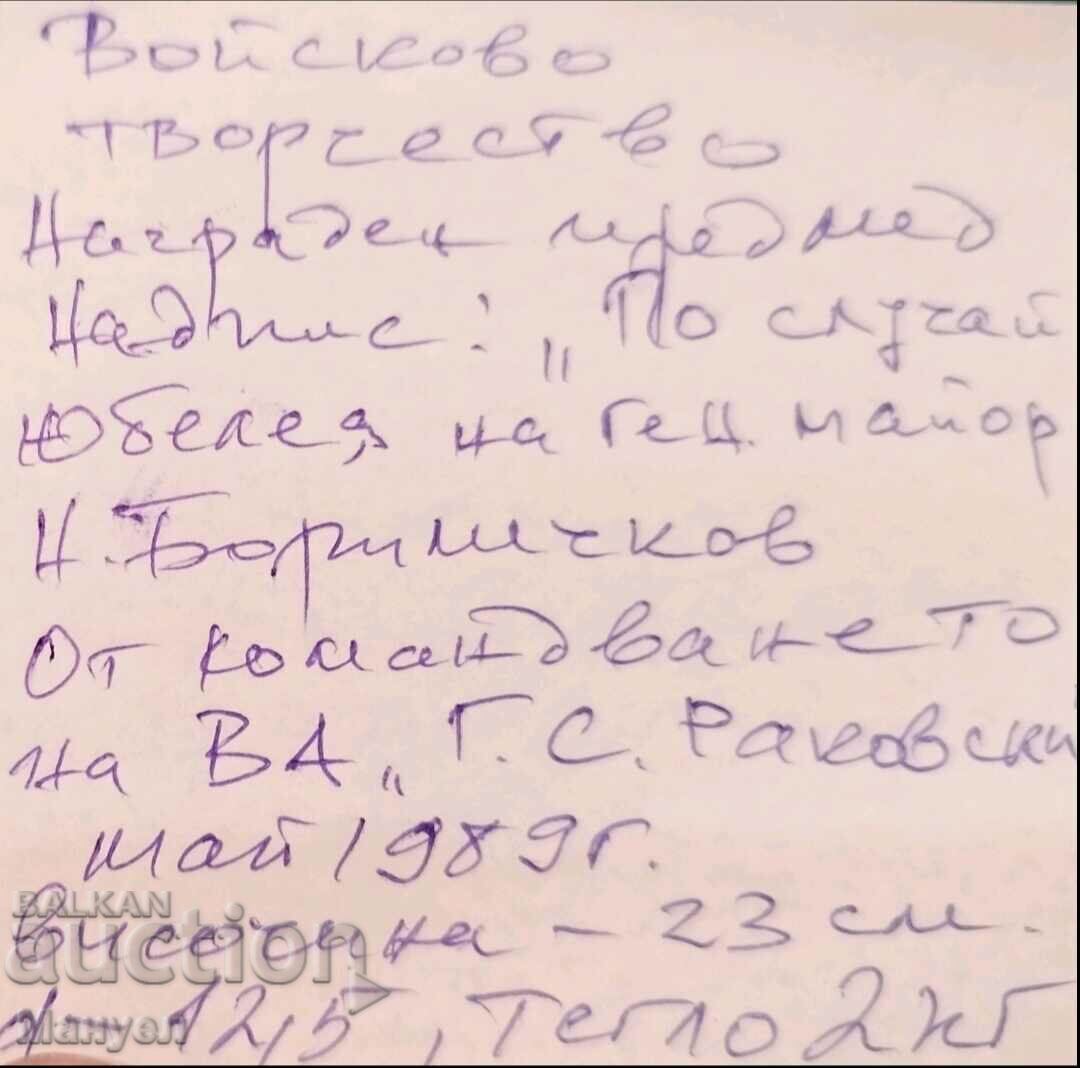 Войсково
творчество
Награден предмед
Надпис: „По случай
Юбелея на ген. майор
Н. Боримечков
От командването
на ВА „Г. С. Раковски
май 1989г.
Височина – 23 см.
12,5, Тегло 2кг
BALKAN
auction
Мануел